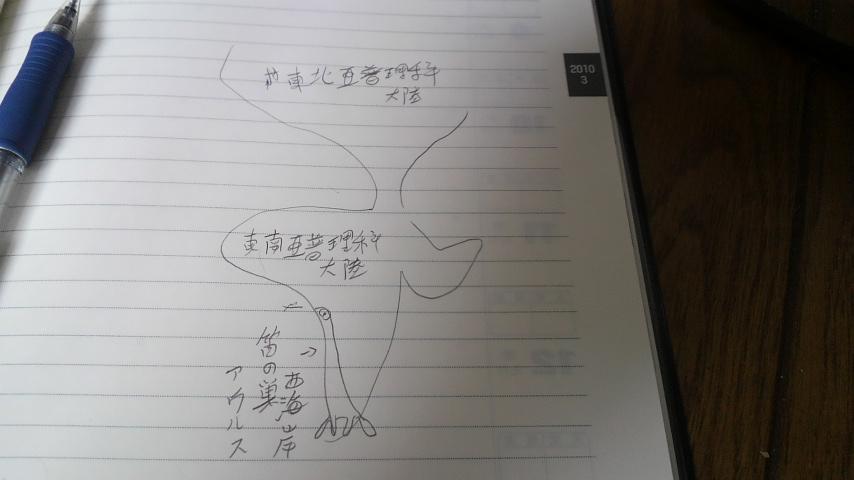 東北亜普理科
大陸
2010
3
東南亜普理科
大陸
西海岸
笛の巣
アウルス